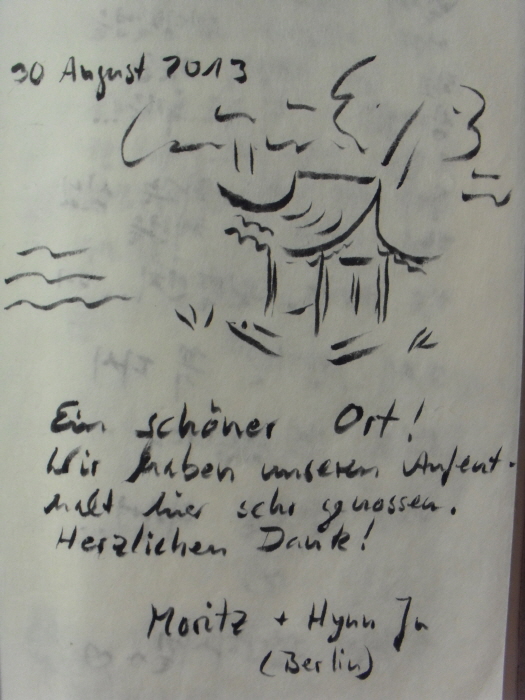 30 August 2013
Ein schöner Ort!
Wir haben unseren Aufent-
halt hier sehr genossen.
Herzlichen Dank!
Moritz + Hyun Ju
(Berlin)